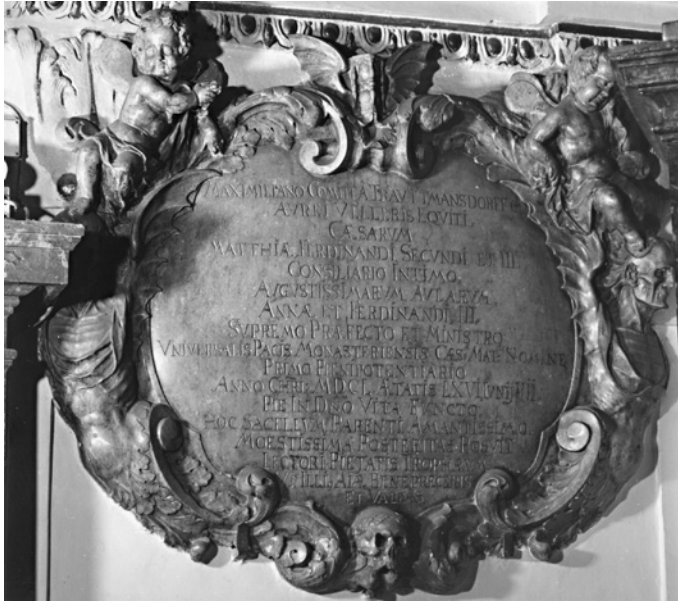 MAXIMILIANO COMITI A TRAVTTMANSDORFF
AVREI VELLERIS EQVITI,
CÆSARVM
MATTHIÆ, FERDINANDI SECVNDI ET III.
CONSILIARIO INTIMO,
AVGVSTISSIMARVM AVLARVM,
ANNÆ ET FERDINANDI III.
SVPREMO PRÆFECTO ET MINISTRO
VNIVERSALIS PACIS MONASTERIENSIS CÆS. MAIE. NOMINE
PRIMO PLENIPOTENTIARIO
ANNO CHRI. MDCL. ÆTATIS LXVI. IVNIJ
PIE IN DNO VITA FVNCTO.
HOC SACELLVM PARENTI AMANTISSIMO.
MOESTISSIMA POSTERITAS POSVIT
LECTORI PIETATIS
ILLI BENE PRECERIS
ET VALEAS